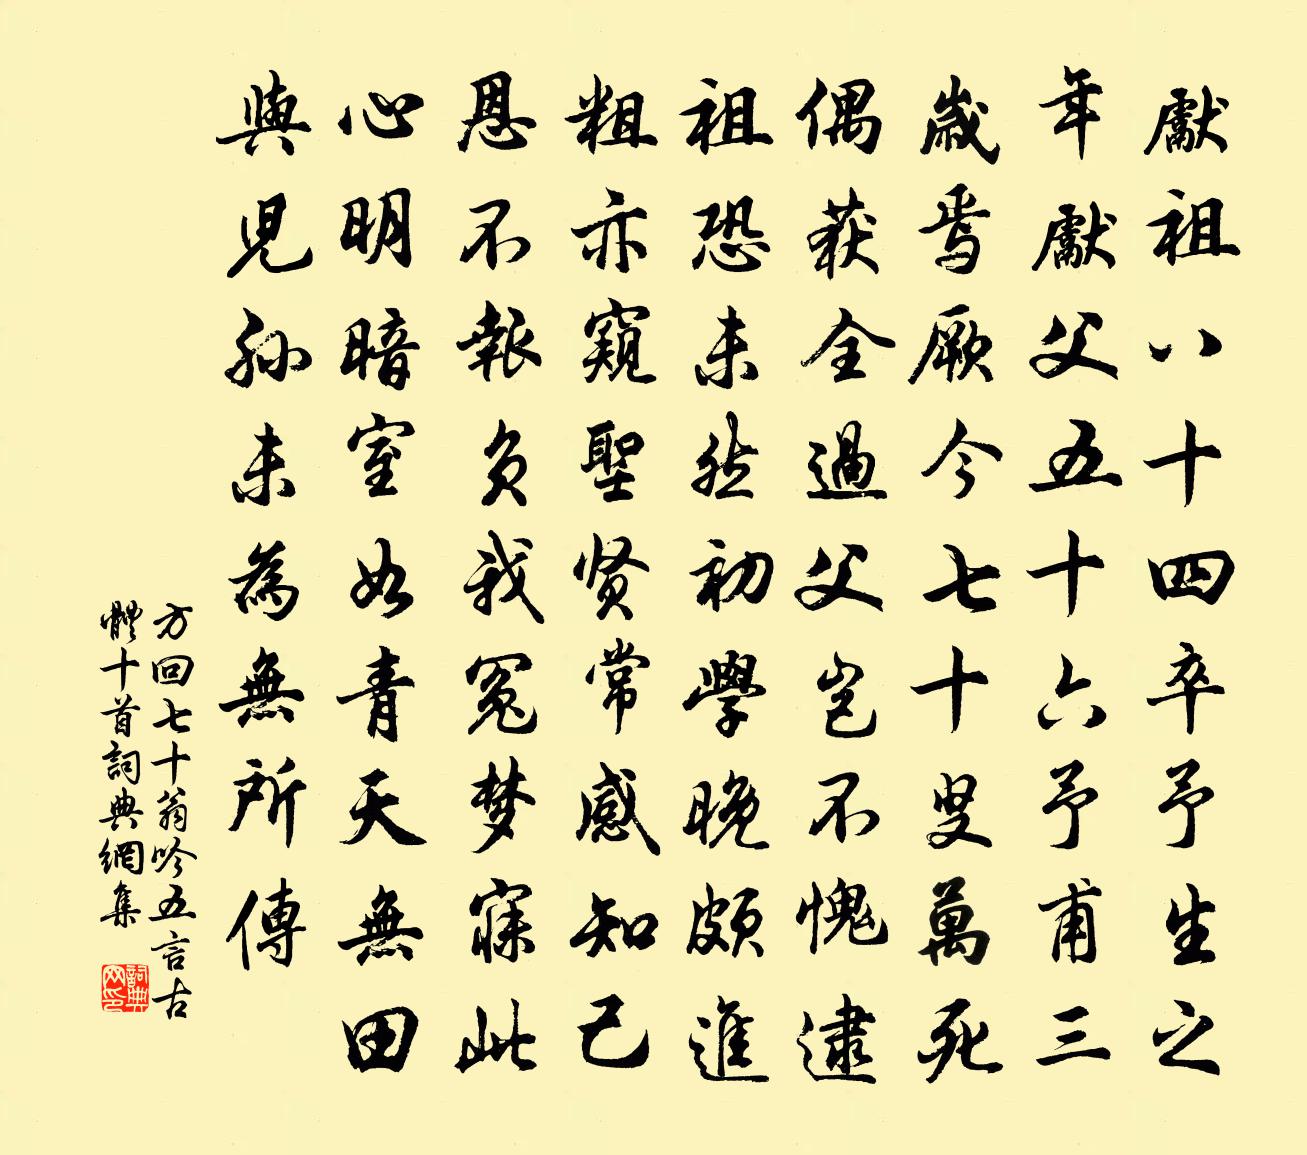 獻祖八十四卒予生之
年獻父五十六予甫三
歲焉厥今七十叟萬死
偶获全過父岂不愧逮
祖恐未然初學晚頗進
粗亦窺聖贤常感知己
恩不報负我冤梦寐此
心明暗室如青天無田
與児孙未為無所傳
方回七十翁吟五言古
體十首詞典網集
詞典
网印